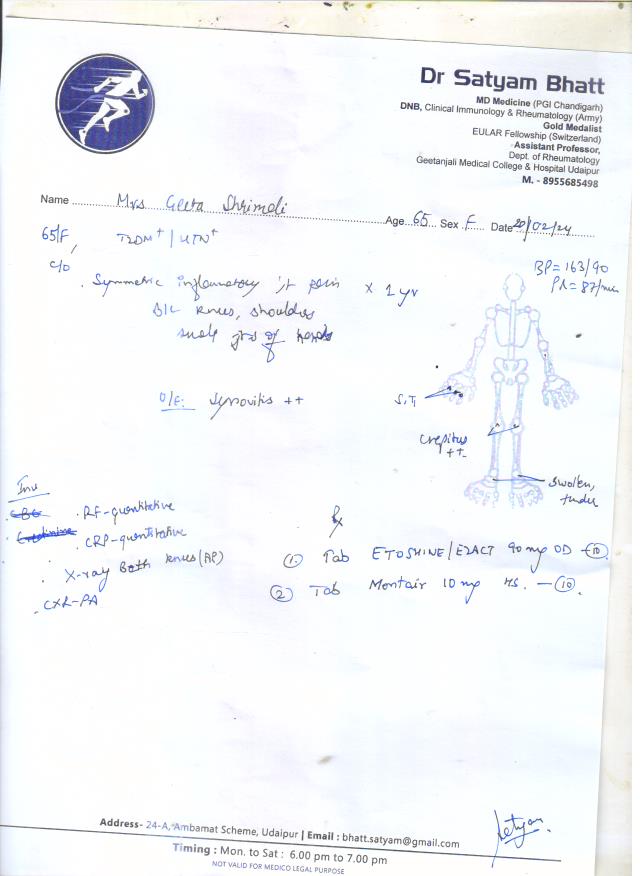 Dr Satyam Bhatt
MD Medicine (PGI Chandigarh)
DNB, Clinical Immunology & Rheumatology (Army)
Gold Medalist
EULAR Fellowship (Switzerland)
Assistant Professor,
Dept. of Rheumatology
Geetanjali Medical College & Hospital Udaipur
M. - 8955685498
Name Mrs Geeta Shrimali
Age 65 Sex F Date 20/02/24
65/F, T2DM+ / HTN+
BP = 163/90
PR = 87/min
c/o
. Symmetric inflammatory jt pain x 1 yr
B/L knees, shoulders
small jts of hands
O/E: Synovitis ++
S, T
crepitus
++
swollen,
tender
Inv
. CBC . RF-quantitative
. Creatinine . CRP-quantitative
. X-ray Both knees (AP)
. CXR-PA
Rx
1. Tab ETOSHINE / EZACT 90 mg OD - 10
2. Tab Montair 10 mg HS. - 10.
Address- 24-A, Ambamat Scheme, Udaipur | Email : bhatt.satyam@gmail.com
Timing : Mon. to Sat : 6.00 pm to 7.00 pm
NOT VALID FOR MEDICO LEGAL PURPOSE